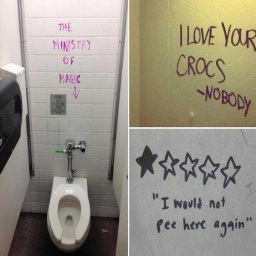 THE
MINISTRY
OF
MAGIC
I LOVE YOUR
CROCS
~NOBODY
"I would not
pee here again"